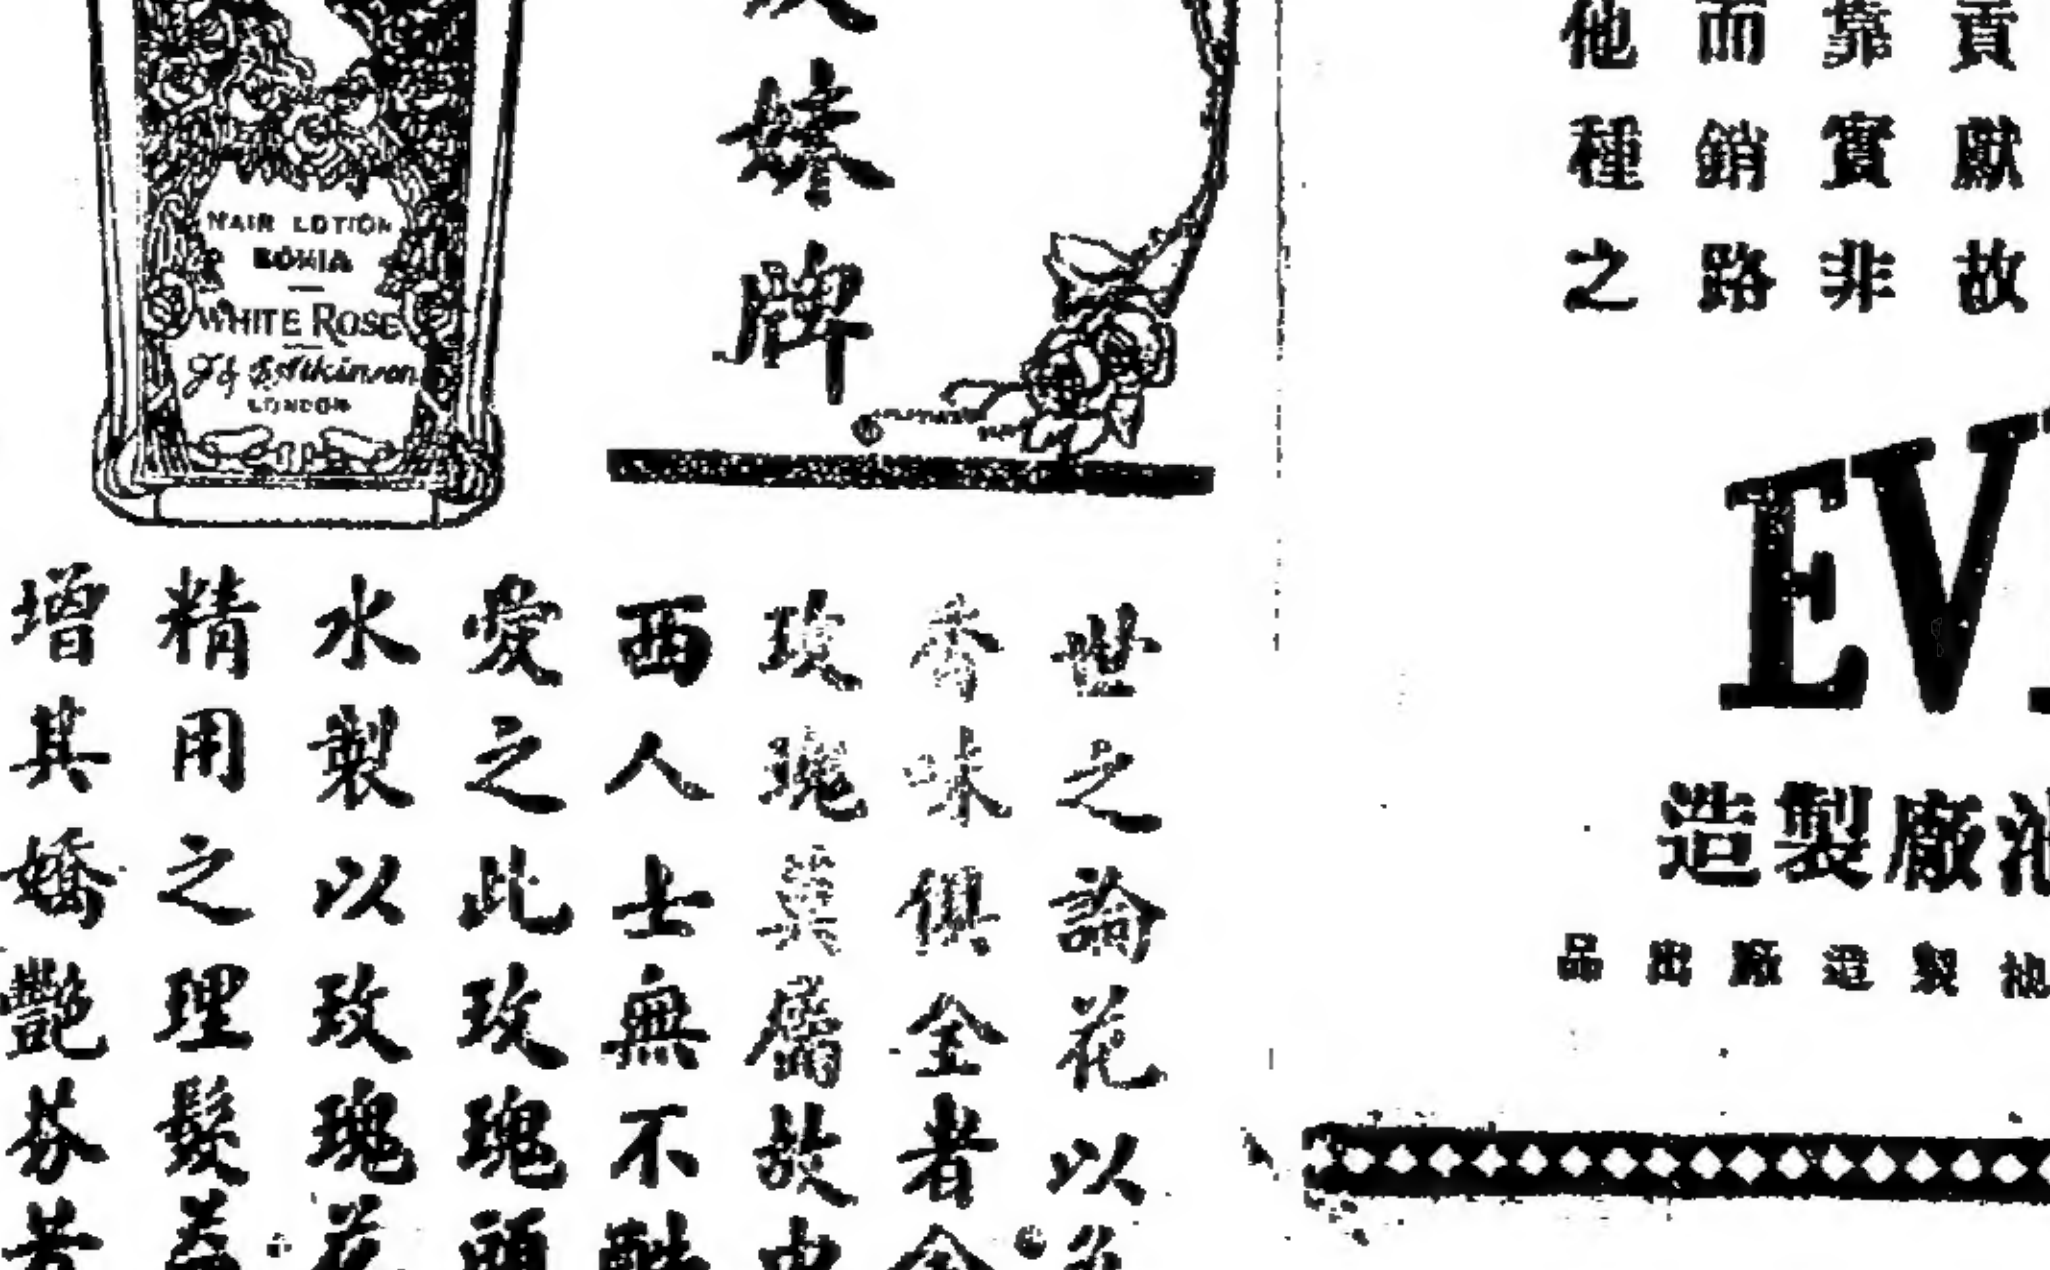 HAIR LOTION
WHITE ROSE
J & E Atkinson
LONDON
妹牌
世之論花以
香味俱全者全
玫瑰莫屬故中
西人士無不酷
愛之此玫瑰頭
水製以玫瑰花
精用之理髮
增其嬌艷芬芳
貢獻故
靠實非
而銷路
他種之
EV
造製廠油
品出廠造製